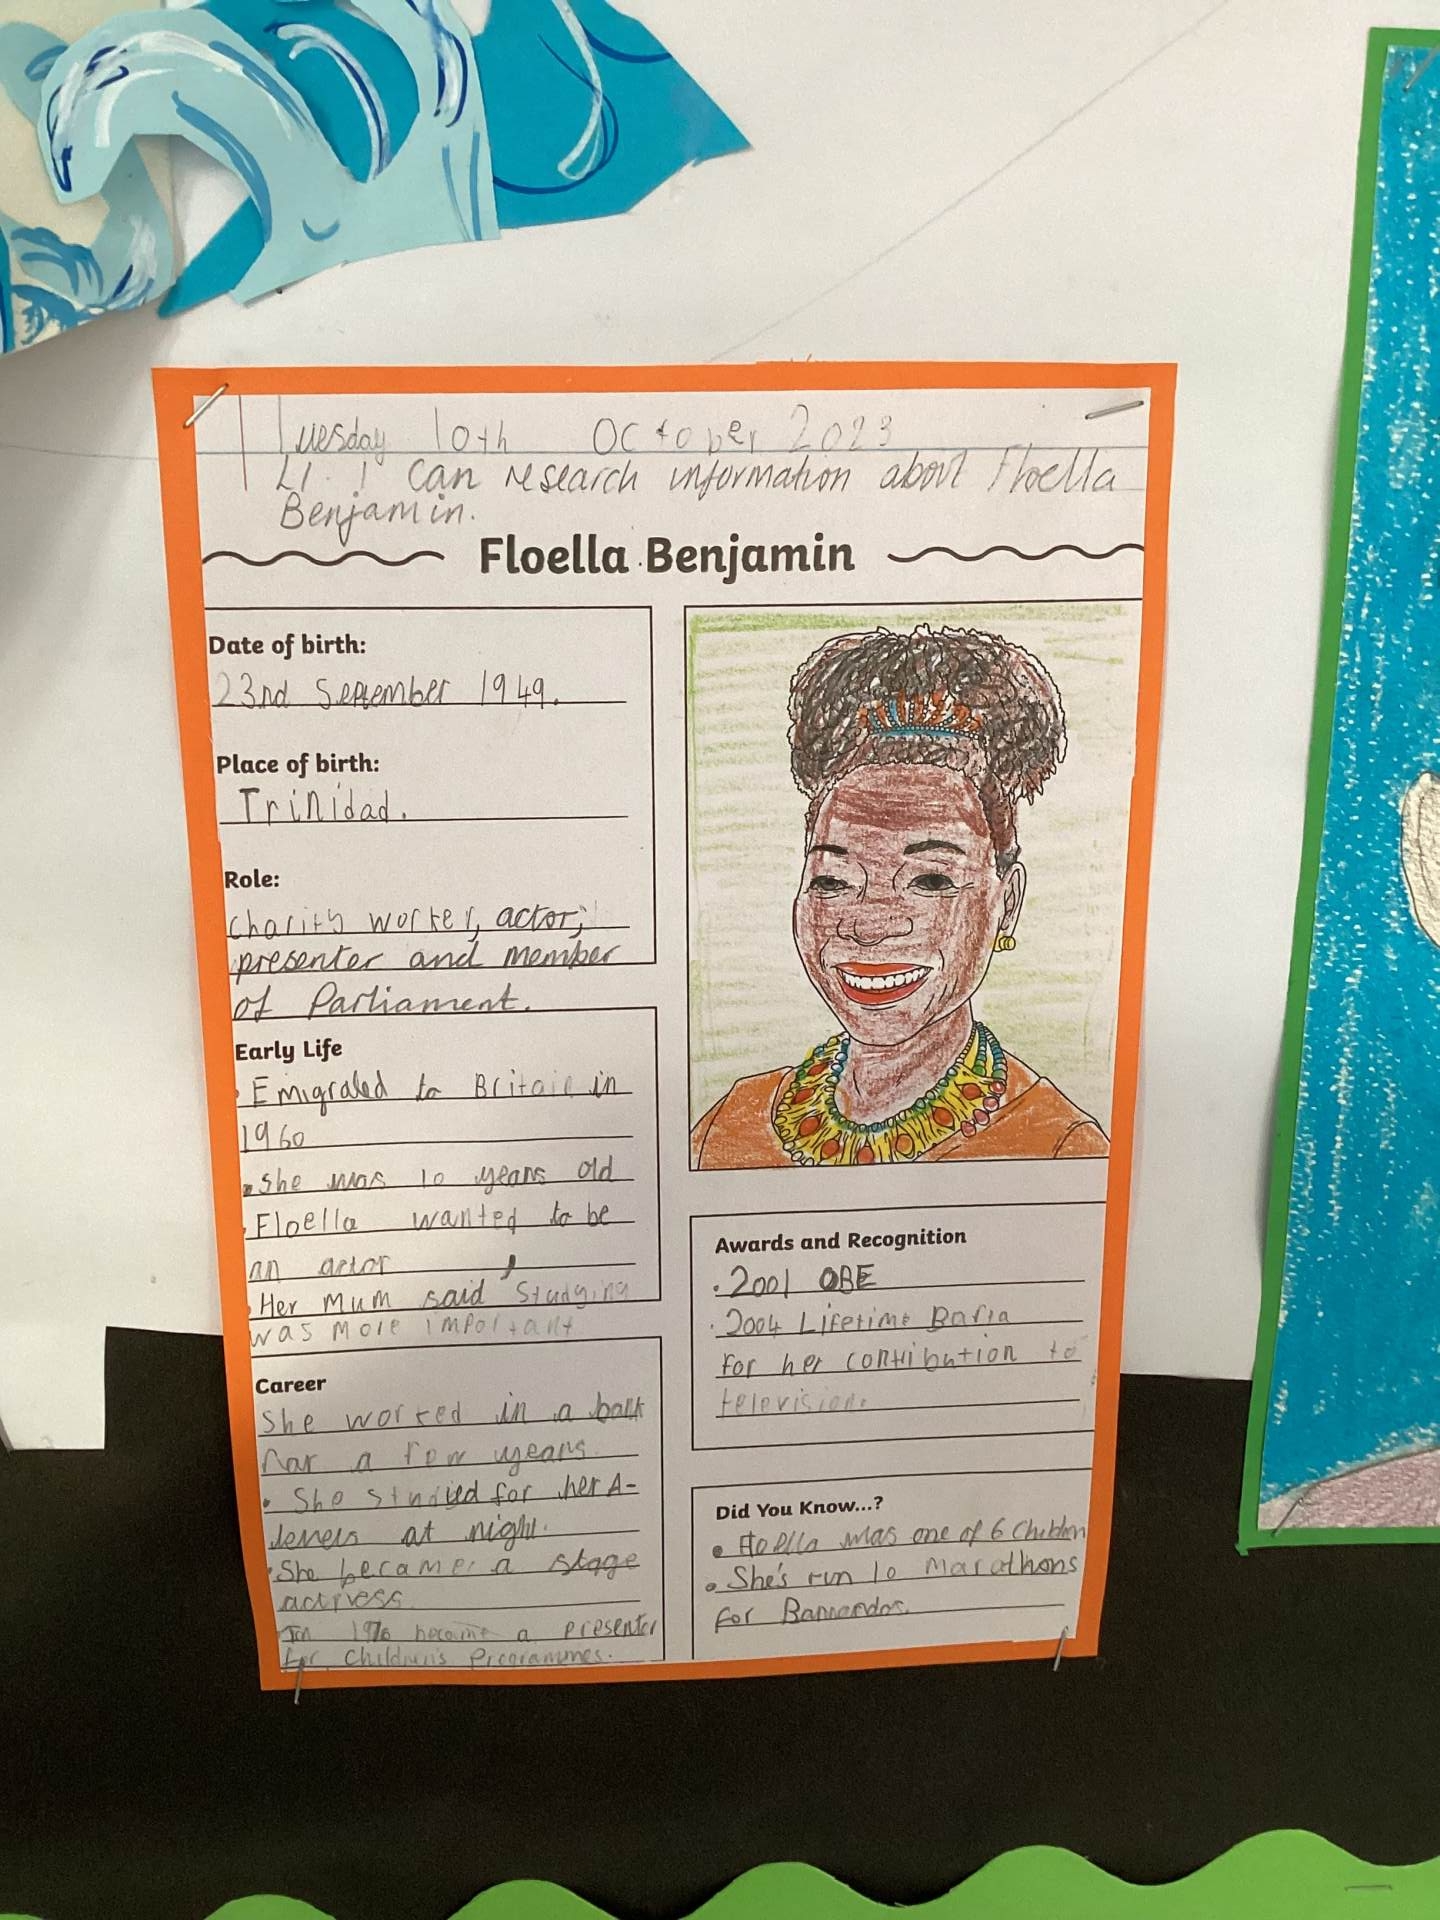 Tuesday 10th October 2023
LI. I can research information about Floella
Benjamin.
Floella Benjamin
Date of birth:
23rd September 1949.
Place of birth:
Trinidad.
Role:
Charity worker, actor,
presenter and member
of Parliament.
Early Life
• Emigrated to Britain in
1960
• She was 10 years old
• Floella wanted to be
an actor
• Her Mum said studying
was more important
Career
She worked in a bank
for a few years.
• She studied for her A-
levels at night.
• She became a stage
actress
In 1976 became a presenter
for Children's Programmes.
Awards and Recognition
• 2001 OBE
• 2004 Lifetime Bafta
for her contribution to
television.
Did You Know...?
• Floella was one of 6 children
• She's run 10 marathons
for Barnardos.